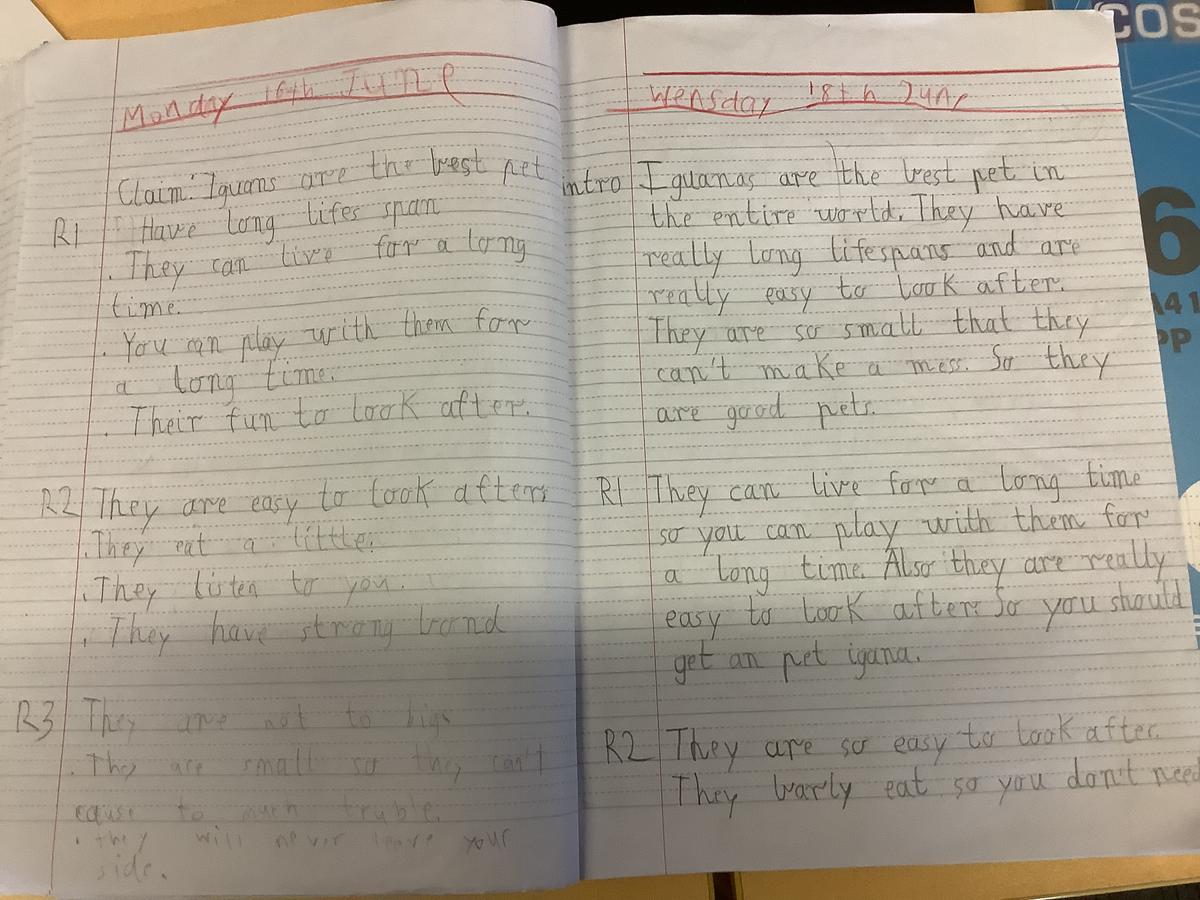 Monday 16th June
Claim: Iguans are the best pet
R1 Have long lifes span
. They can live for a long
time.
. You can play with them for
a long time.
. Their fun to look after.
R2 They are easy to look after.
. They eat a little.
. They listen to you.
. They have strong bond
R3 They are not to big.
. They are small so they can't
cause to much truble.
. they will never leave your
side.
Wensday 18th June
intro Iguanas are the best pet in
the entire world. They have
really long lifespans and are
really easy to look after.
They are so small that they
can't make a mess. So they
are good pets.
R1 They can live for a long time
so you can play with them for
a long time. Also they are really
easy to look after. So you should
get an pet igana.
R2 They are so easy to look after.
They barly eat so you don't need
COS
6
A41
PP